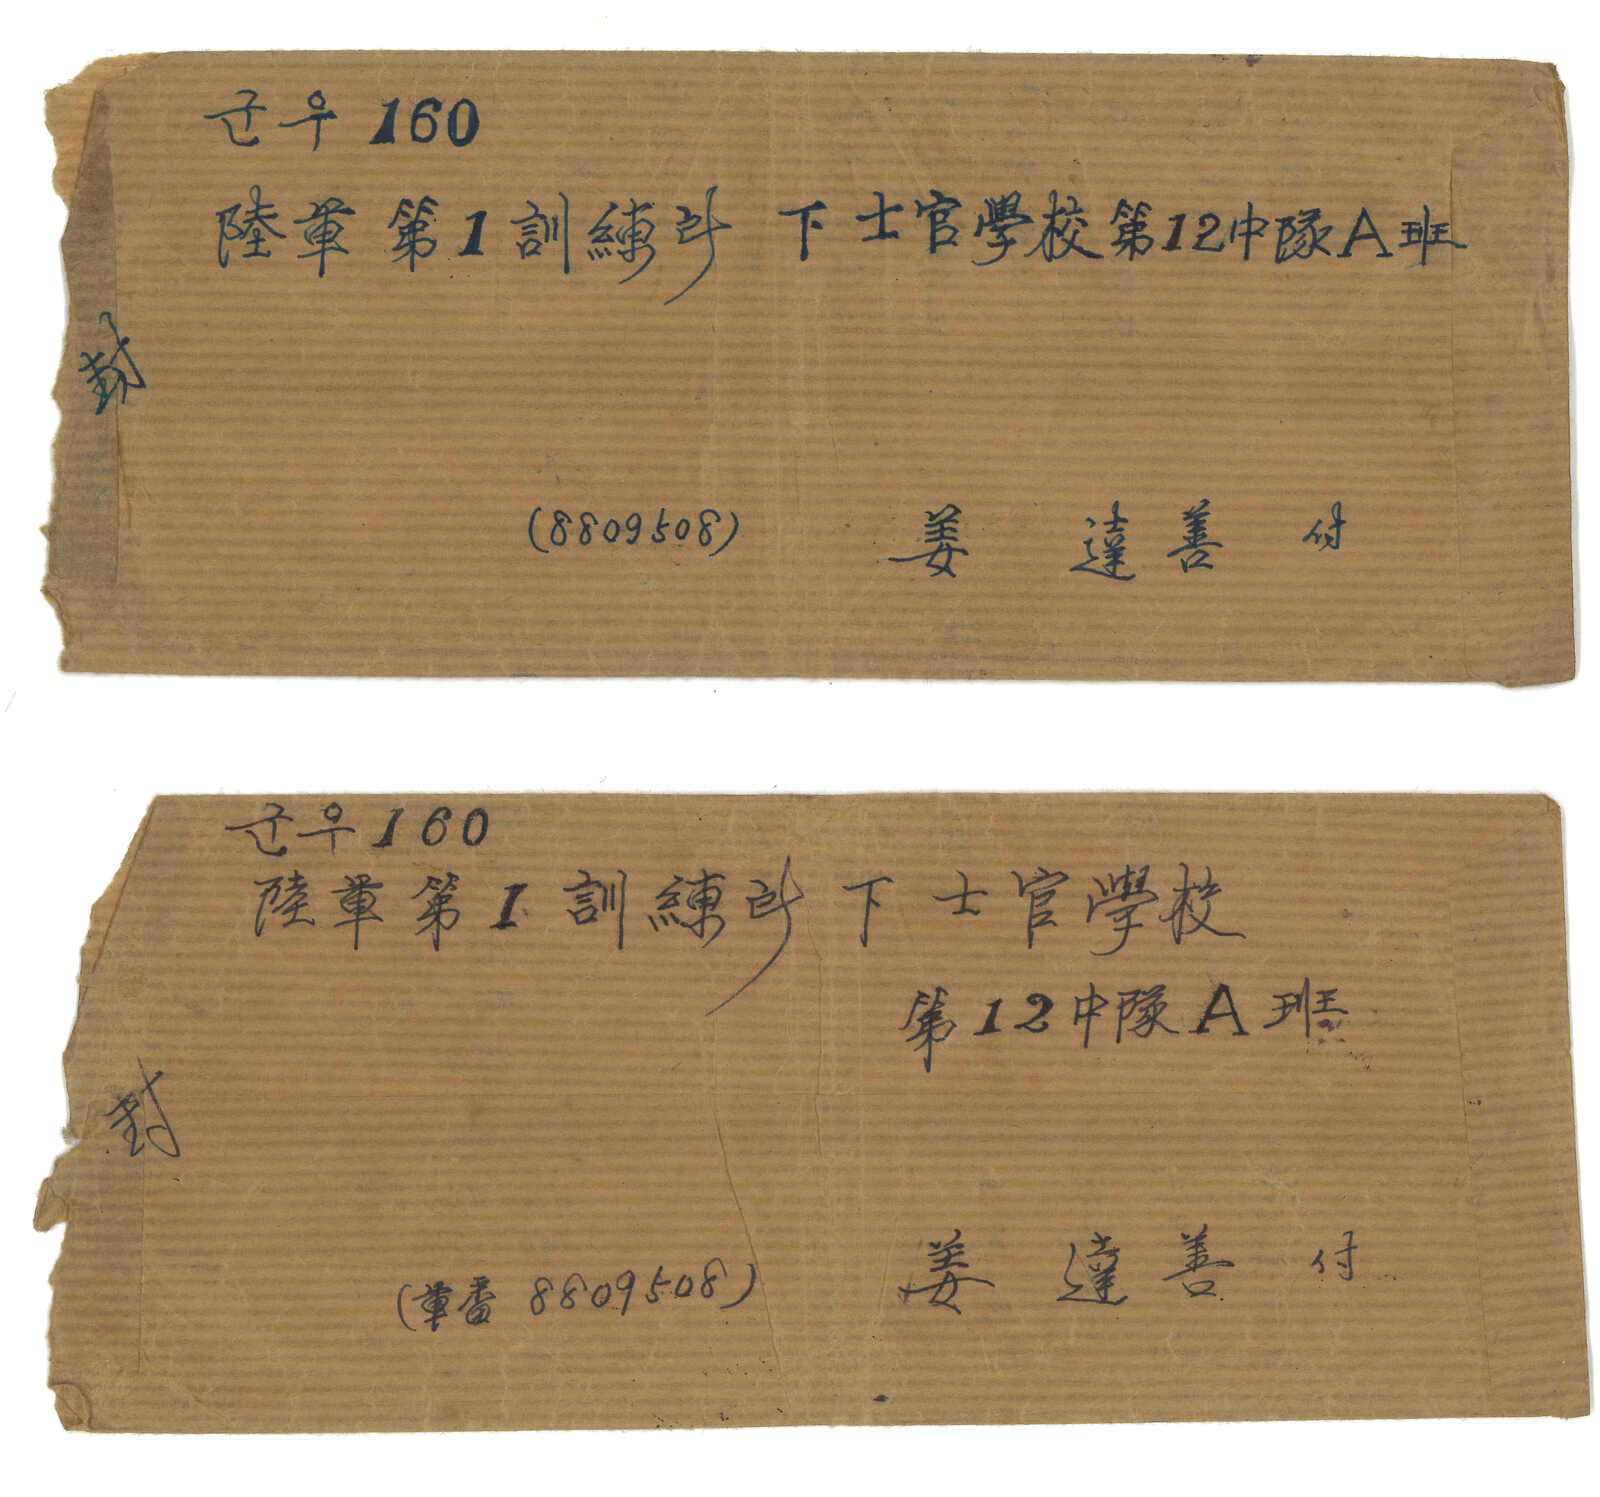 군우 160
陸軍 第1訓練所 下士官學校第12中隊A班
封
(8809508) 姜 達善 付
군우 160
陸軍第1訓練所 下士官學校
第12中隊 A 班
封
(軍番 8809508) 姜 達善 付